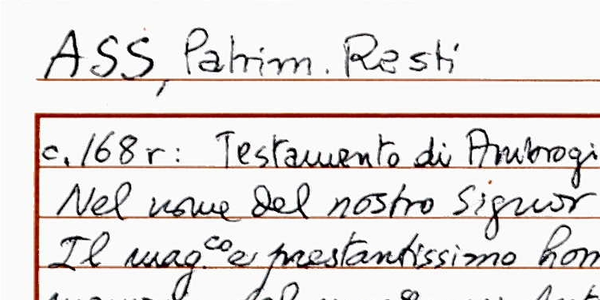 ASS, Patrim. Resti
c. 168 r: Testamento di Ambrogi
Nel nome del nostro Signor
Il mag.co e prestantissimo hom